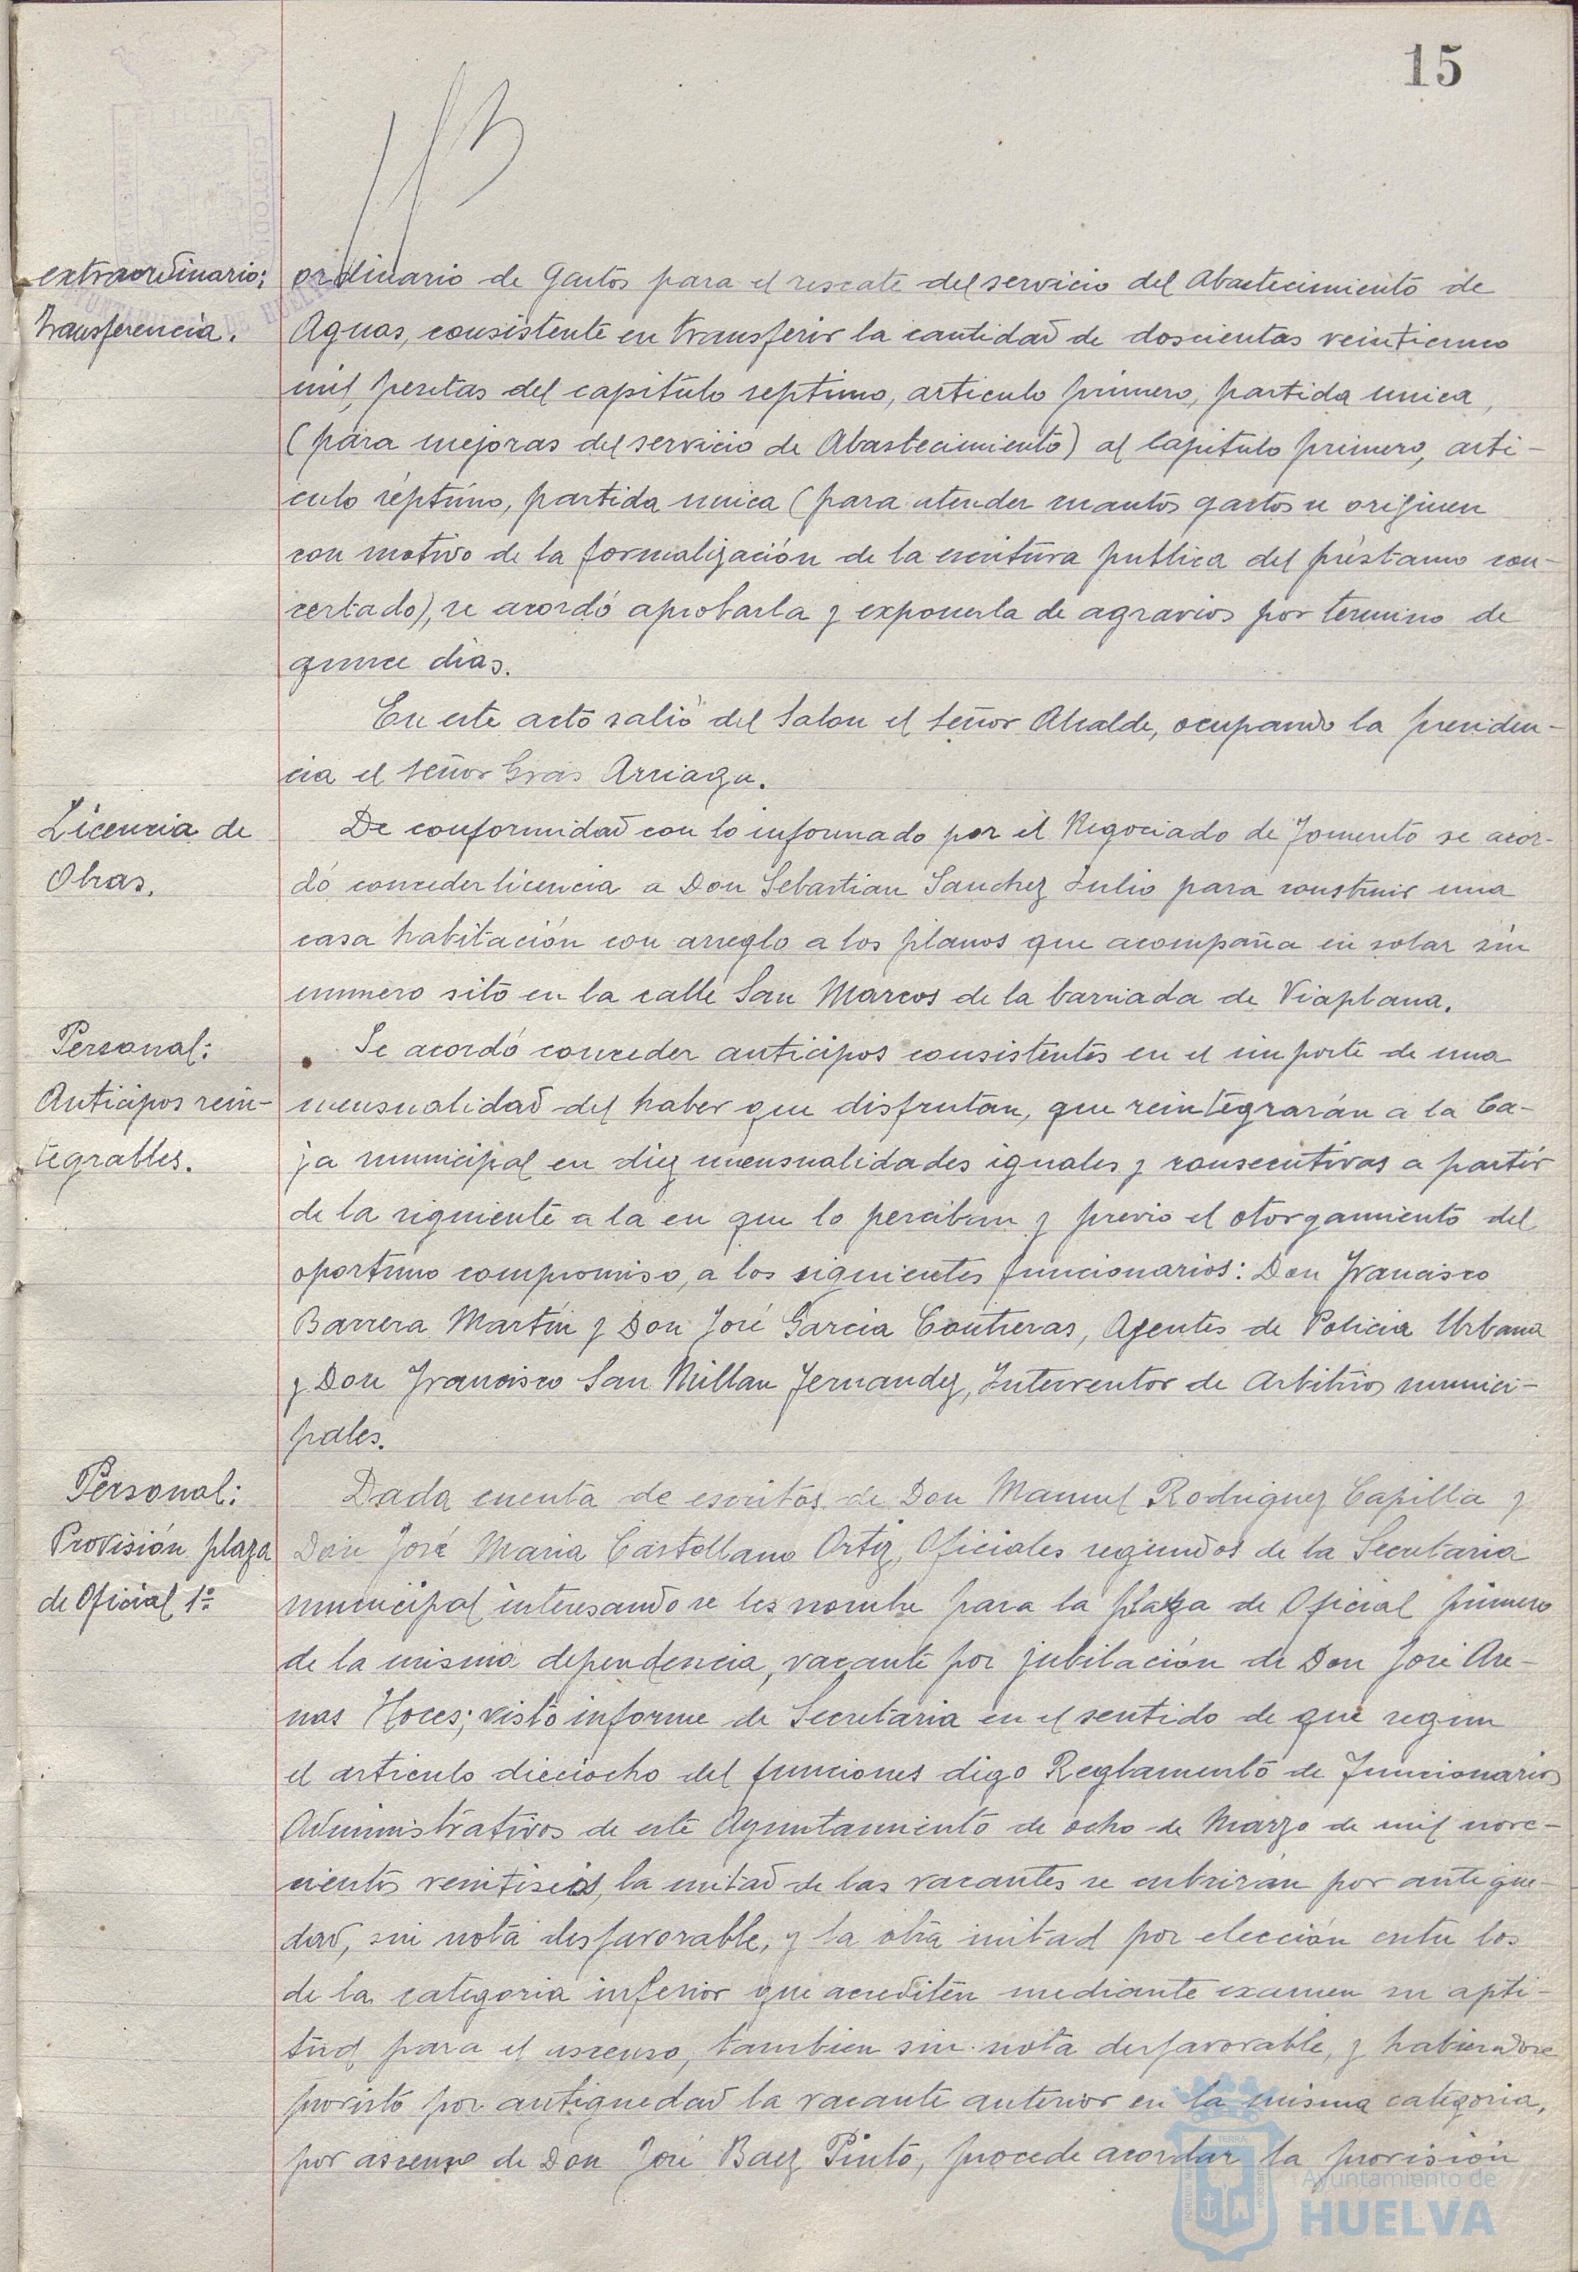 15
extraordinario:
Transferencia.
ordinario de Gastos para el rescate del servicio del Abastecimiento de
Aguas, consistente en transferir la cantidad de doscientas veinticinco
mil pesetas del capitulo septimo, articulo primero, partida unica,
(para mejoras del servicio de Abastecimiento) al Capitulo primero, arti-
culo séptimo, partida unica (para atender cuantos gastos se originen
con motivo de la formalización de la escritura publica del préstamo con-
certado), se acordó aprobarla y exponerla de agravios por termino de
quince dias.
En este acto salió del Salon el Señor Alcalde, ocupando la presiden-
cia el señor Gras Arriaga.
Licencia de
Obras.
De conformidad con lo informado por el Negociado de Fomento se acor-
dó conceder licencia a Don Sebastian Sanchez Julio para construir una
casa habitación con arreglo a los planos que acompaña en solar sin
numero sito en la calle San Marcos de la barriada de Viaplana.
Personal:
Anticipos rein-
tegrables.
Se acordó conceder anticipos consistentes en el importe de una
mensualidad del haber que disfrutan, que reintegrarán a la Ca-
ja municipal en diez mensualidades iguales y consecutivas a partir
de la siguiente a la en que lo perciban y previo el otorgamiento del
oportuno compromiso, a los siguientes funcionarios: Don Francisco
Barrera Martín y Don José Garcia Contreras, Agentes de Policia Urbana
y Don Francisco San Millan Fernandez, Interventor de Arbitrios munici-
pales.
Personal:
Provisión plaza
de Oficial 1º
Dada cuenta de escritos de Don Manuel Rodriguez Capilla y
Don José Maria Castellano Ortiz, Oficiales segundos de la Secretaria
municipal interesando se les nombre para la plaza de Oficial primero
de la misma dependencia, vacante por jubilación de Don José Are-
nas Hoces; visto informe de Secretaria en el sentido de que segun
el articulo dieciocho del funciones digo Reglamento de Funcionarios
Administrativos de este Ayuntamiento de ocho de Marzo de mil nove-
cientos veintiseis, la mitad de las vacantes se cubrirán por antigue-
dad, sin nota desfavorable, y la otra mitad por elección entre los
de la categoria inferior que acrediten mediante examen su apti-
tud para el ascenso, tambien sin nota desfavorable, y habiendose
provisto por antiguedad la vacante anterior en la misma categoria,
por ascenso de Don José Baez Pinto, procede acordar la provisión
Ayuntamiento de
HUELVA